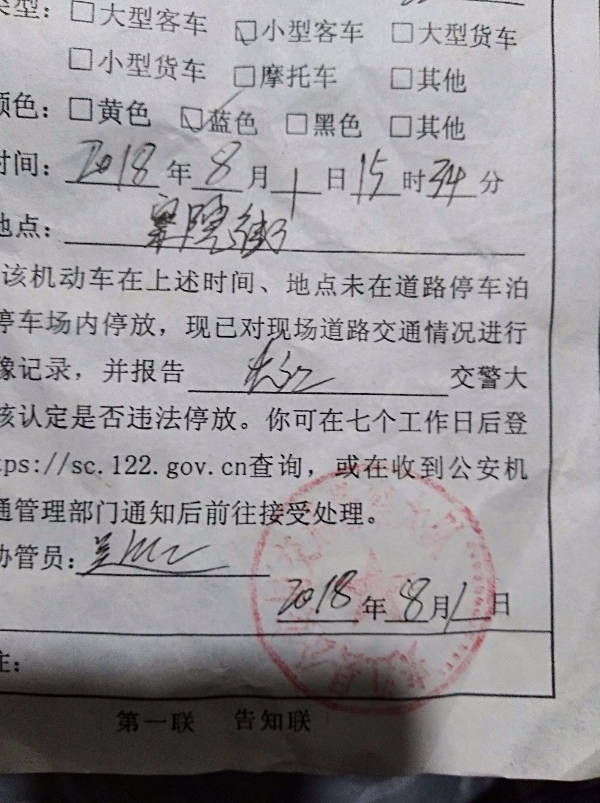 类型：□大型客车 ☑小型客车 □大型货车
□小型货车 □摩托车 □其他
颜色：□黄色 ☑蓝色 □黑色 □其他
时间：2018年8月1日15时34分
地点：
该机动车在上述时间、地点未在道路停车泊
停车场内停放，现已对现场道路交通情况进行
像记录，并报告 交警大
核认定是否违法停放。你可在七个工作日后登
tps://sc.122.gov.cn查询，或在收到公安机
通管理部门通知后前往接受处理。
协管员：
2018年8月1日
注：
第一联 告知联